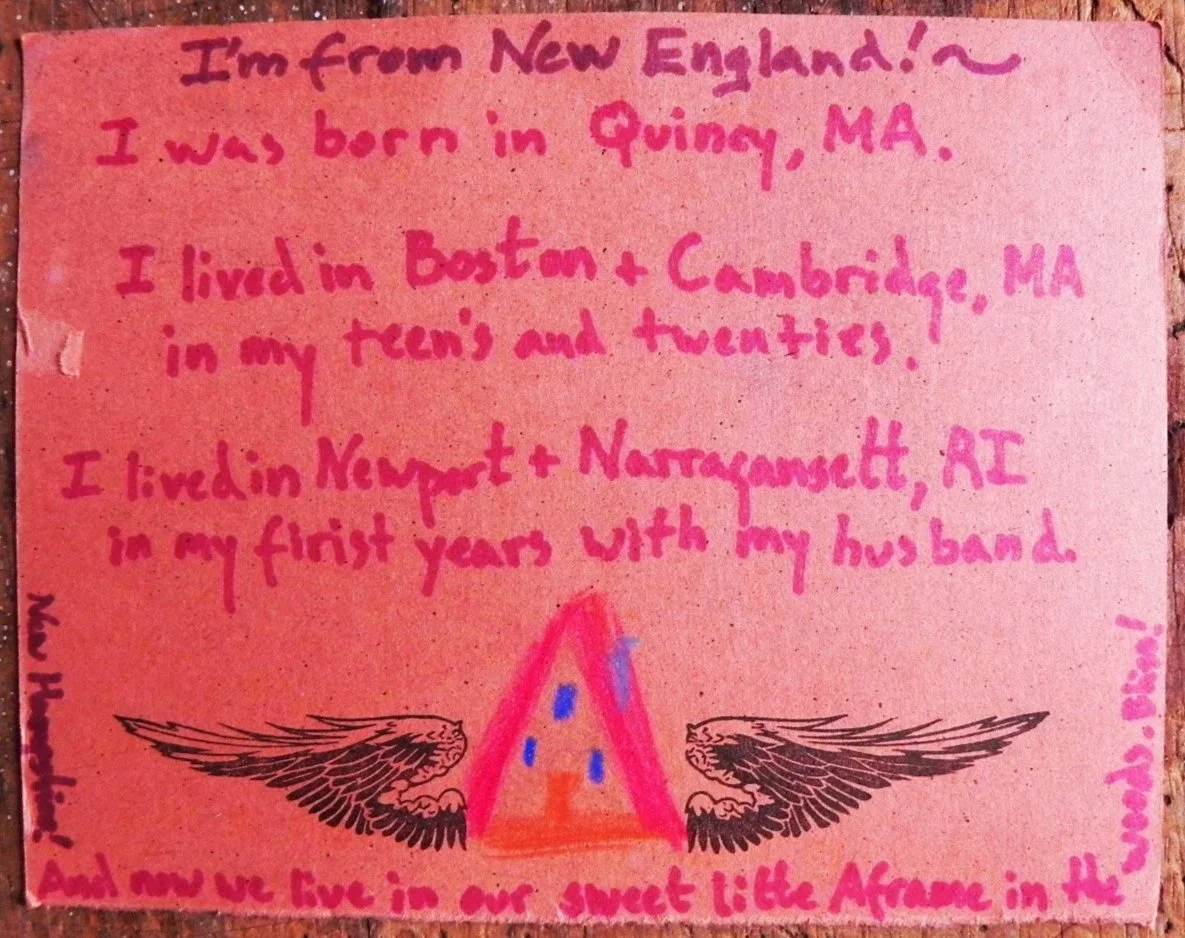 I'm from New England!~
I was born in Quincy, MA.
I lived in Boston + Cambridge, MA
in my teen's and twenties.
I lived in Newport + Narragansett, RI
in my firist years with my husband.
And now we live in our sweet little Aframe in the
woods. Bliss!
New Hampshire!